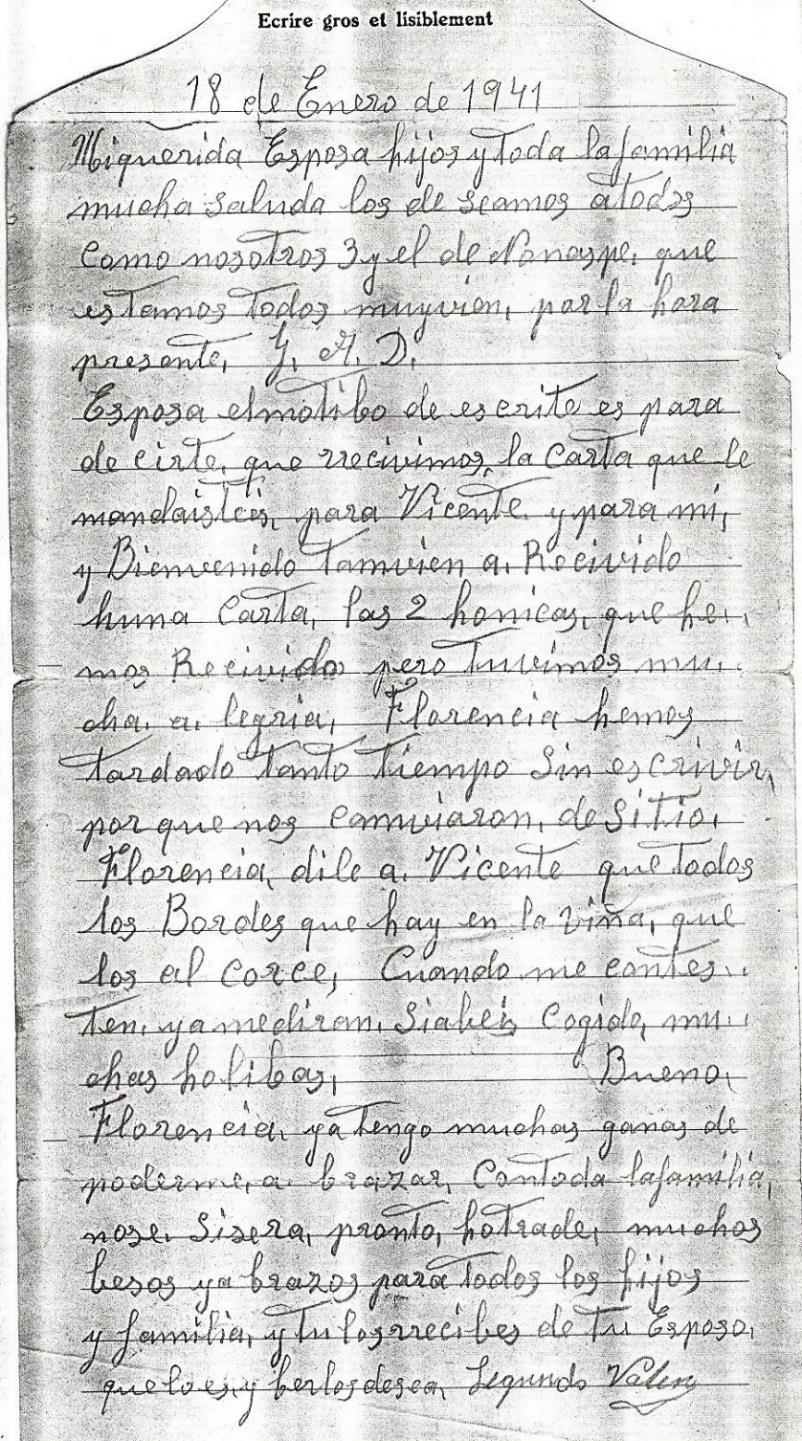 Ecrire gros et lisiblement
18 de Enero de 1941
Miquerida Esposa hijos y toda la familia
mucha saluda los de seamos atodos
como nosotros 3 y el de Nonaspe, que
es Tamos Todos muyvien, por la hora
presente, G. A. D.
Esposa elmotibo de es crite es para
de cirte, que rrecivimos, la Carta que le
mandaisteis, para Vicente y para mi,
y Bienvenido Tamvien a. Recivido
huna Carta, las 2 honicas, que he..
mos Recivido pero Tuvimos mu..
cha. a. legria, Florencia hemos
Tardado Tanto Tiempo Sin es crivir,
por que nos camviaron, de Sitio,
Florencia, dile a. Vicente que Todos
los Bordes que hay en la viña, que
los al corce, Cuando me contes..
Ten, ya mediran, Siabeis Cogido, mu..
chas holibas, Bueno,
Florencia, ya Tengo muchas ganas de
poderme, a. brazar, Contoda lafamilia,
nose. Sisera, pronto, hotrade, muchos
besos ya brazos para Todos los hijos
y familia, y Tu losrrecibes de Tu Esposo,
que loes, y berlosdesea, Segundo